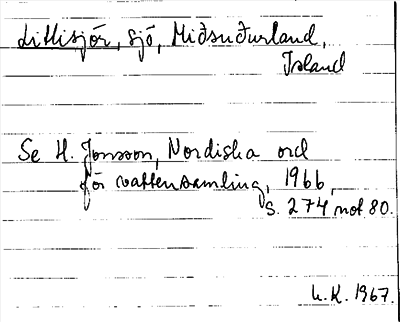 Litlisjór, sjö, Miðsuðurland,
Island
Se H. Jonsson, Nordiska ord
för vattensamling, 1966,
s. 274 not 80.
U.K. 1967.